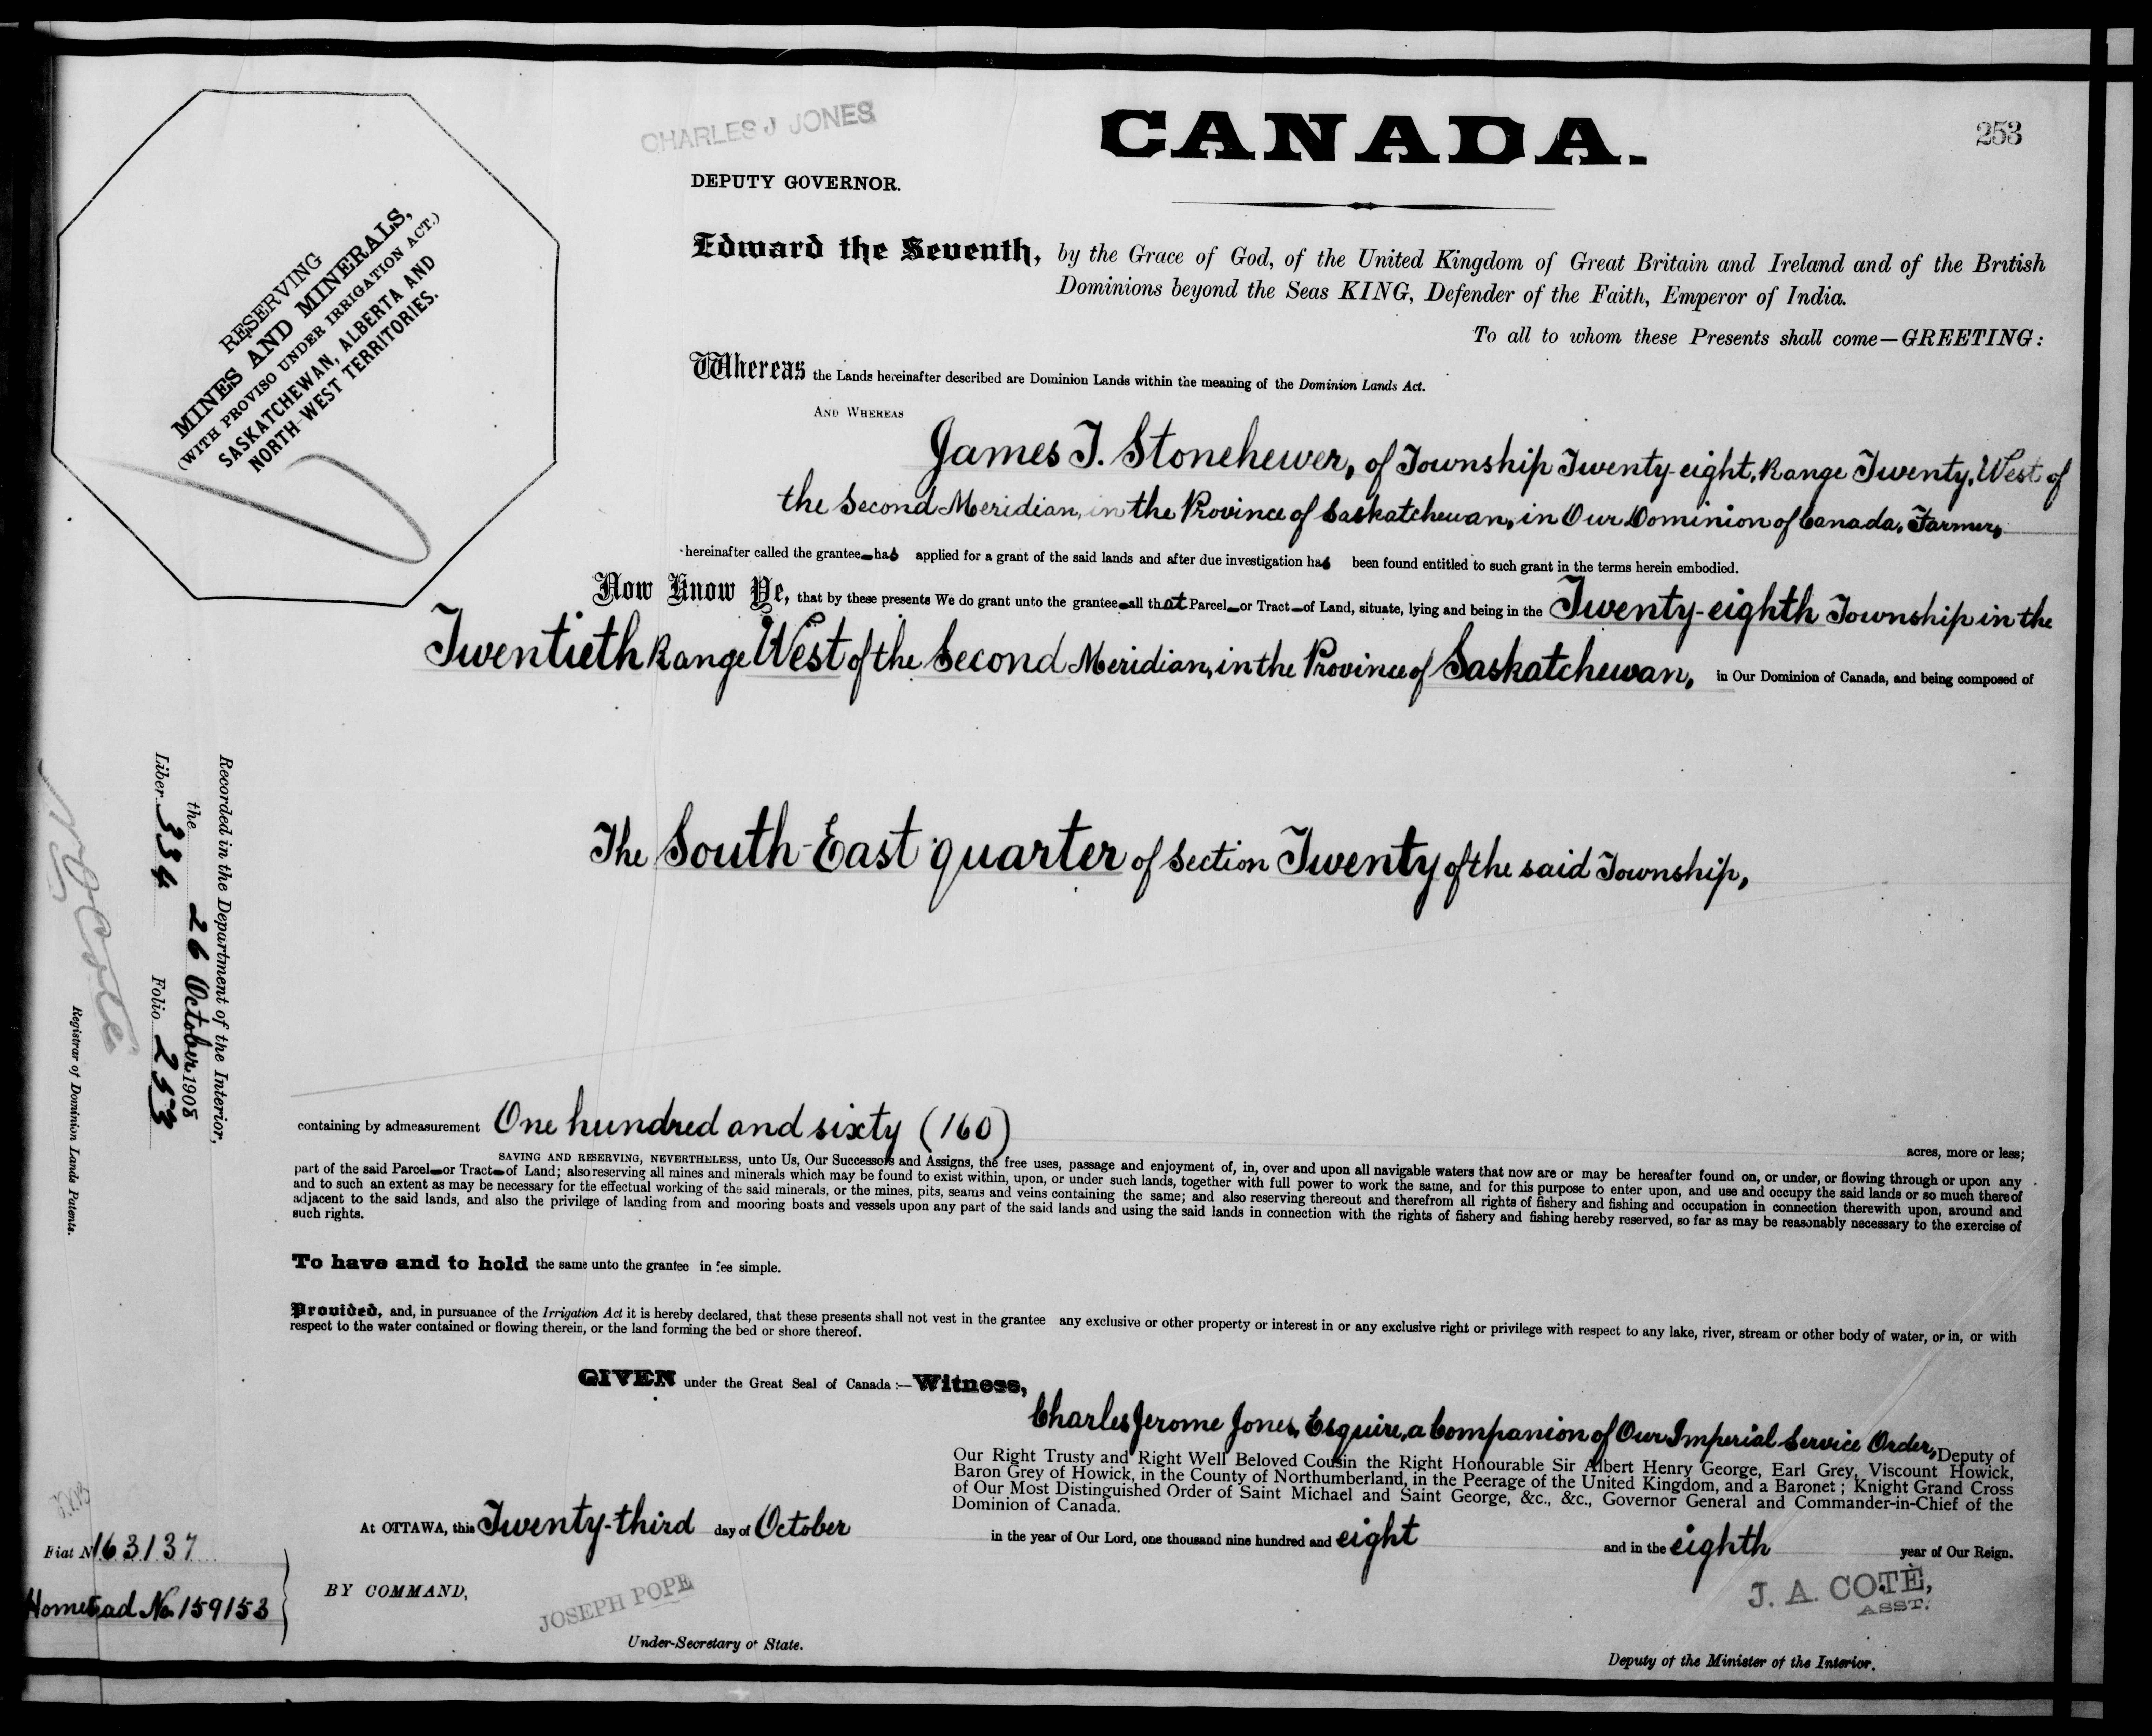 CHARLES J JONES
CANADA.
253
DEPUTY GOVERNOR.
RESERVING
MINES AND MINERALS,
(WITH PROVISO UNDER IRRIGATION ACT.)
SASKATCHEWAN, ALBERTA AND
NORTH-WEST TERRITORIES.
Edward the Seventh, by the Grace of God, of the United Kingdom of Great Britain and Ireland and of the British
Dominions beyond the Seas KING, Defender of the Faith, Emperor of India.
To all to whom these Presents shall come—GREETING:
Whereas the Lands hereinafter described are Dominion Lands within the meaning of the Dominion Lands Act.
AND WHEREAS
James T. Stonehewer, of Township Twenty-eight, Range Twenty, West of
the Second Meridian, in the Province of Saskatchewan, in Our Dominion of Canada, Farmer,
hereinafter called the grantee has applied for a grant of the said lands and after due investigation has been found entitled to such grant in the terms herein embodied.
Now Know Ye, that by these presents We do grant unto the grantee all that Parcel or Tract of Land, situate, lying and being in the Twenty-eighth Township in the
Twentieth Range West of the Second Meridian, in the Province of Saskatchewan, in Our Dominion of Canada, and being composed of
The South-East quarter of Section Twenty of the said Township,
Recorded in the Department of the Interior,
the 26 October 1908
Liber 334 Folio 253
Registrar of Dominion Lands Patents.
containing by admeasurement One hundred and sixty (160) acres, more or less;
SAVING AND RESERVING, NEVERTHELESS, unto Us, Our Successors and Assigns, the free uses, passage and enjoyment of, in, over and upon all navigable waters that now are or may be hereafter found on, or under, or flowing through or upon any
part of the said Parcel or Tract of Land; also reserving all mines and minerals which may be found to exist within, upon, or under such lands, together with full power to work the same, and for this purpose to enter upon, and use and occupy the said lands or so much thereof
and to such an extent as may be necessary for the effectual working of the said minerals, or the mines, pits, seams and veins containing the same; and also reserving thereout and therefrom all rights of fishery and fishing and occupation in connection therewith upon, around and
adjacent to the said lands, and also the privilege of landing from and mooring boats and vessels upon any part of the said lands and using the said lands in connection with the rights of fishery and fishing hereby reserved, so far as may be reasonably necessary to the exercise of
such rights.
To have and to hold the same unto the grantee in fee simple.
Provided, and, in pursuance of the Irrigation Act it is hereby declared, that these presents shall not vest in the grantee any exclusive or other property or interest in or any exclusive right or privilege with respect to any lake, river, stream or other body of water, or in, or with
respect to the water contained or flowing therein, or the land forming the bed or shore thereof.
GIVEN under the Great Seal of Canada:—Witness,
Charles Jerome Jones, Esquire, a Companion of Our Imperial Service Order, Deputy of
Our Right Trusty and Right Well Beloved Cousin the Right Honourable Sir Albert Henry George, Earl Grey, Viscount Howick,
Baron Grey of Howick, in the County of Northumberland, in the Peerage of the United Kingdom, and a Baronet; Knight Grand Cross
of Our Most Distinguished Order of Saint Michael and Saint George, &c., &c., Governor General and Commander-in-Chief of the
Dominion of Canada.
At OTTAWA, this Twenty-third day of October in the year of Our Lord, one thousand nine hundred and eight and in the eighth year of Our Reign.
Fiat No 163137
Homestead No. 159153
BY COMMAND,
JOSEPH POPE
Under-Secretary of State.
J. A. COTÉ,
ASST.
Deputy of the Minister of the Interior.